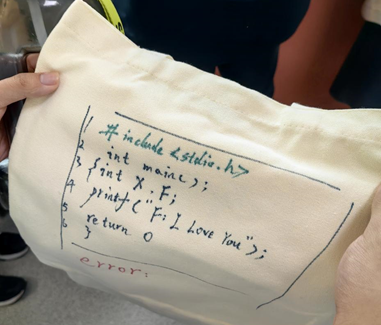 1 # include <stdio.h>
2 int main();
3 { int X, F;
4 printf("F: I Love You");
5 return 0
6 }
error: